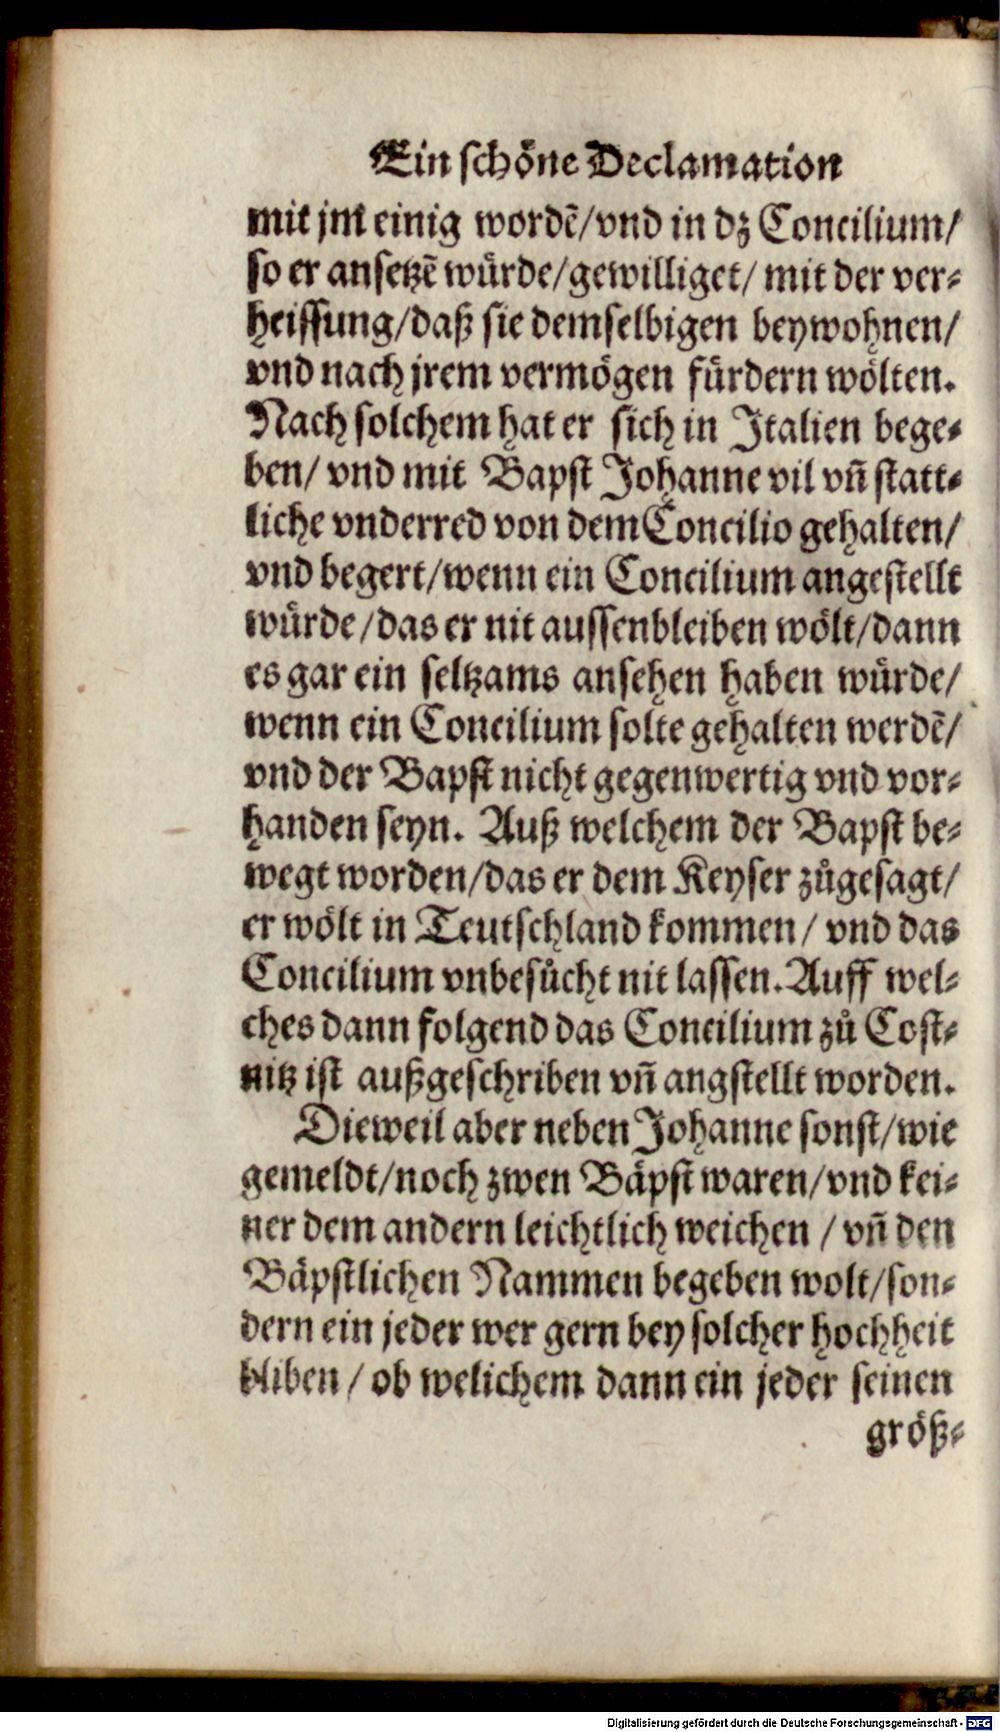 Ein schöne Declamation
mit jm̃ einig wordẽ/vnd in dz Concilium/
so er ansetzẽ würde/gewilliget/ mit der ver-
heissung/daß sie demselbigen beywohnen/
vnd nach jrem vermögen fürdern wölten.
Nach solchem hat er sich in Italien bege-
ben/ vnd mit Bapst Johanne vil vñ statt-
liche vnderred von dem Concilio gehalten/
vnd begert/wenn ein Concilium angestellt
würde/das er nit aussenbleiben wölt/dann
es gar ein seltzams ansehen haben würde/
wenn ein Concilium solte gehalten werdẽ/
vnd der Bapst nicht gegenwertig vnd vor-
handen seyn. Auß welchem der Bapst be-
wegt worden/das er dem Keyser zůgesagt/
er wölt in Teutschland kommen/ vnd das
Concilium vnbesůcht nit lassen. Auff wel-
ches dann folgend das Concilium zů Cost-
nitz ist außgeschriben vñ angstellt worden.
Dieweil aber neben Johanne sonst/wie
gemeldt/noch zwen Bäpst waren/vnd kei-
ner dem andern leichtlich weichen / vñ den
Bäpstlichen Nammen begeben wolt/son-
dern ein jeder wer gern bey solcher hochheit
bliben / ob welichem dann ein jeder seinen
größ-
Digitalisierung gefördert durch die Deutsche Forschungsgemeinschaft - DFG